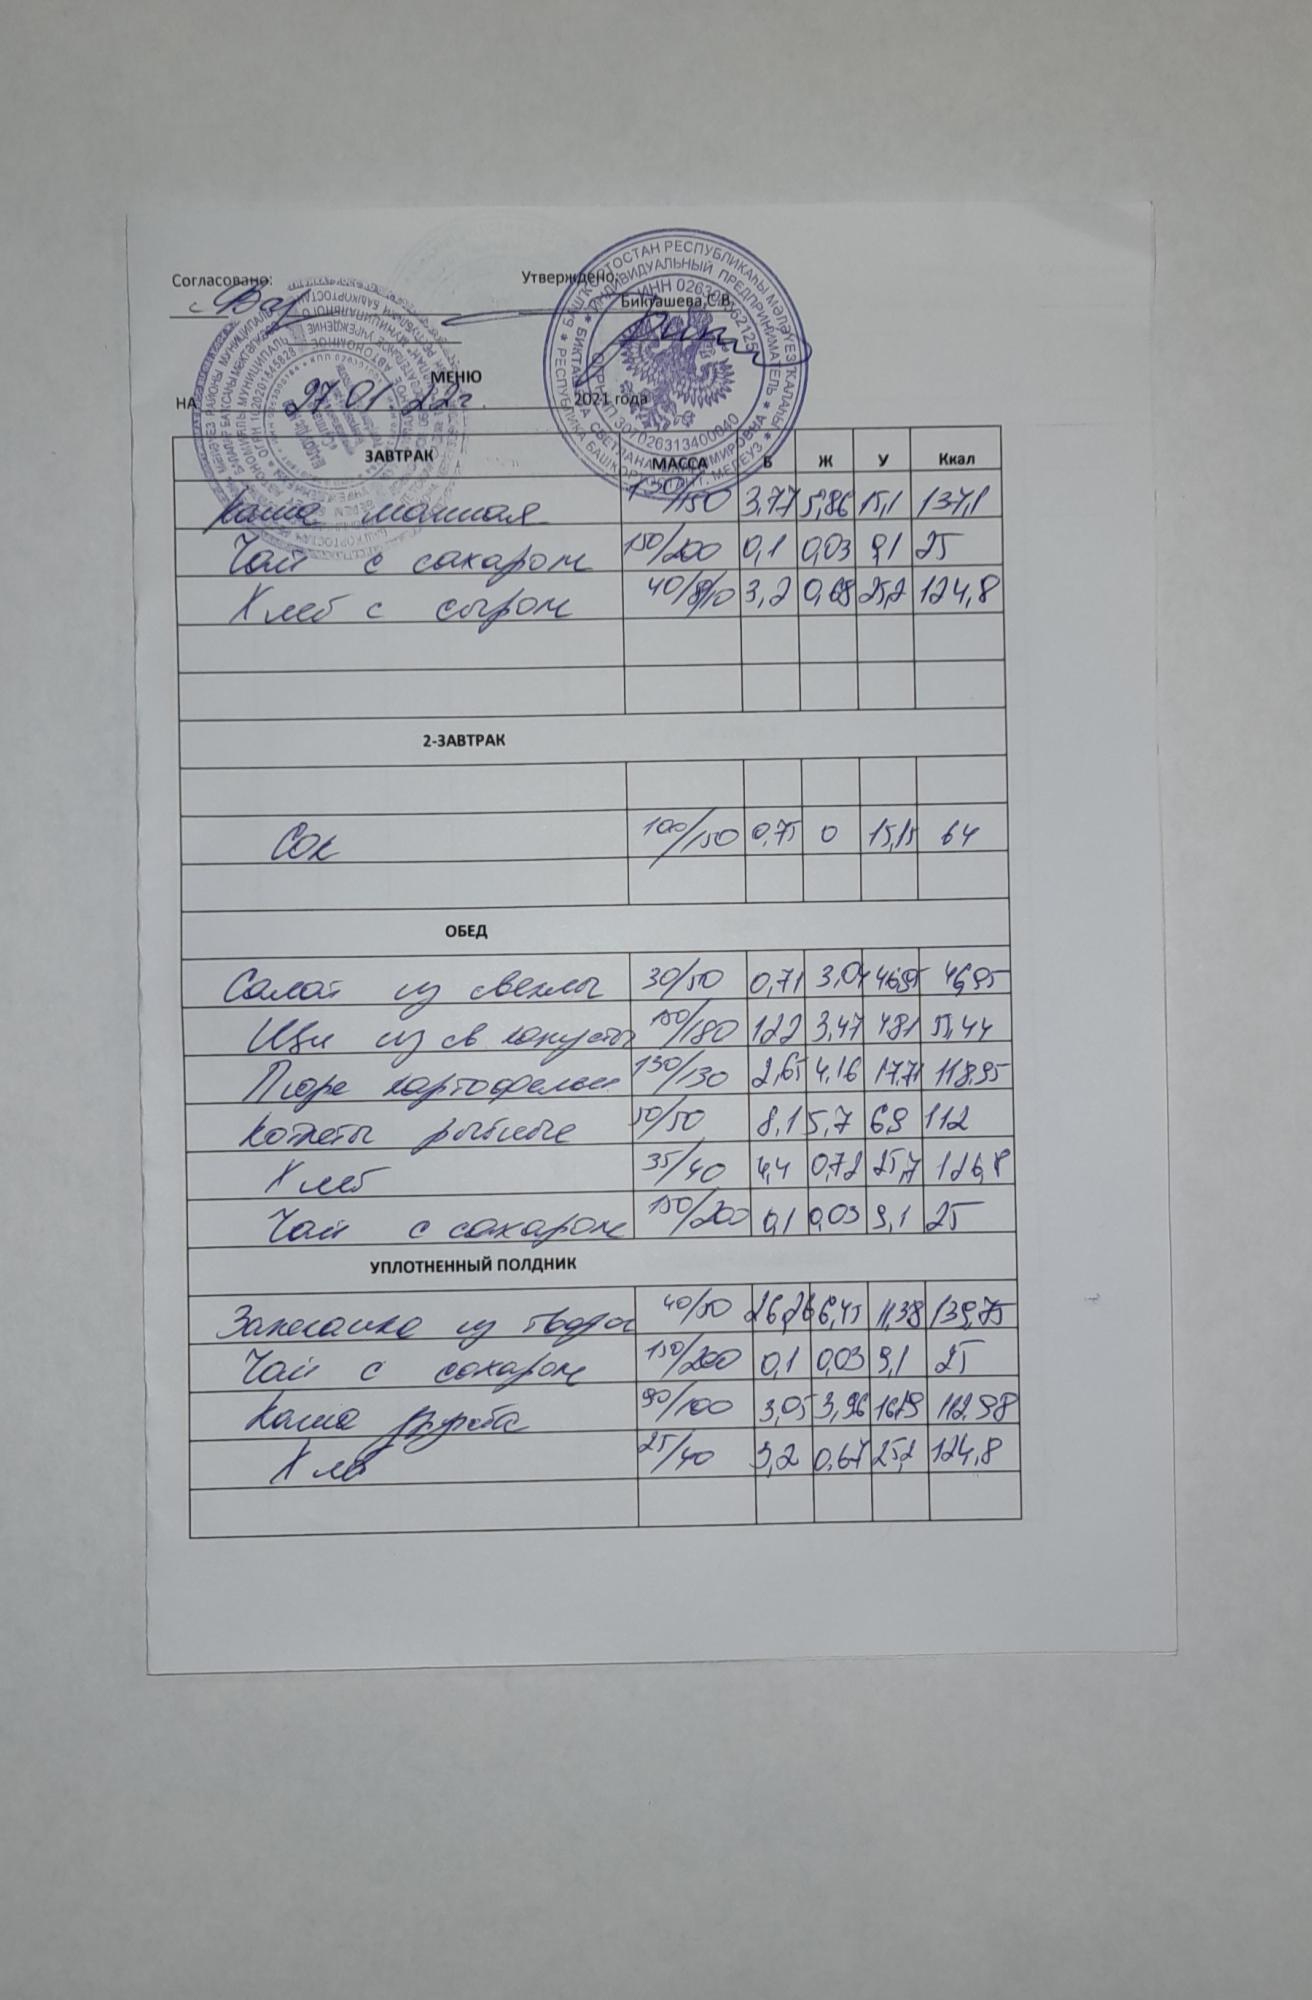 Согласовано: Утверждено:
Бикташева С.В.
МЕНЮ
НА 27.01 22г. 2021 года
ЗАВТРАК МАССА Б Ж У Ккал
Каша манная 130/150 3,77 5,86 15,1 137,1
Чай с сахаром 150/200 0,1 0,03 9,1 25
Хлеб с сыром 3,2 0,68 25,2 124,8
2-ЗАВТРАК
Сок 100/150 0,75 0 15,15 64
ОБЕД
Салат из свеклы 30/50 0,71 3,04 46,95 46,95
Щи из св капусты 150/180 122 3,47 481 55,44
Пюре картофельн 130/130 2,65 4,16 17,71 118,95
Котлеты рыбные 50/50 8,1 5,7 69 112
Хлеб 35/40 4,4 0,72 25,7 126,8
Чай с сахаром 150/200 0,1 0,03 9,1 25
УПЛОТНЕННЫЙ ПОЛДНИК
Запеканка из творог 40/50 26,26 6,45 11,38 139,75
Чай с сахаром 150/200 0,1 0,03 9,1 25
Каша дружба 90/100 3,05 3,96 16,19 112.98
Хлеб 25/40 3,2 0,67 25,2 124,8